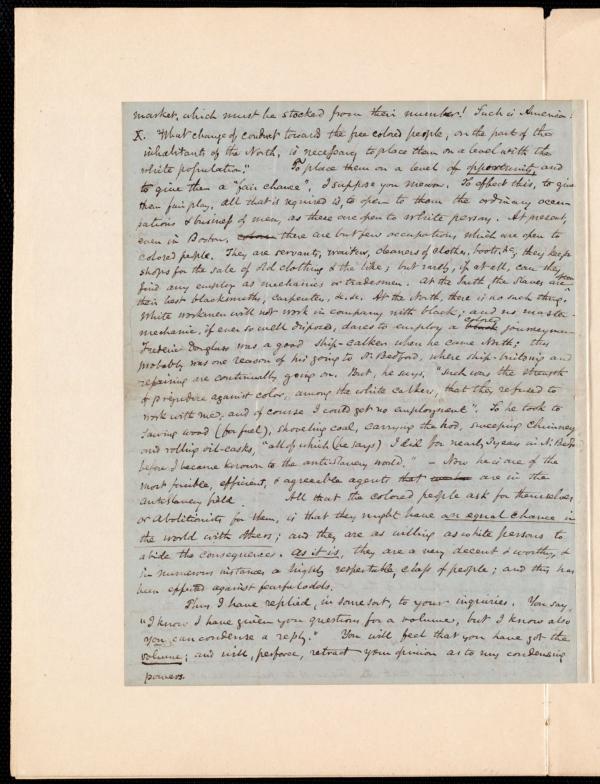 market, which must be stocked from their number! Such is America!
X. "What change of conduct toward the free colored people, on the part of the
inhabitants of the North, is necessary to place them on a level with the
white population." To place them on a level of opportunity and
to give them a "fair chance", I suppose you mean. To effect this, to give
them fair play, all that is required is, to open to them the ordinary occu-
pations & business of men, as these are open to white persons. At present,
even in Boston, there are but few occupations, which are open to
colored people. They are servants, waiters, cleaners of clothes, boots, &c, they keep
shops for the sale of old clothing & the like; but rarely, if at all, can they
find any employ as mechanics or tradesmen. At the South, the slaves are
their best blacksmiths, carpenters, &c. &c. At the North, there is no such thing.
White workmen will not work in company with black; and no master-
mechanic, if ever so well disposed, dares to employ a colored black journeyman.
Frederic Douglass was a good ship-calker when he came North; this
probably was one reason of his going to N. Bedford, where ship-building and
repairing are continually going on. But, he says, "such was the strength
of prejudice against color, among the white calkers, that they refused to
work with me, and of course I could get no employment". So he took to
sawing wood (for fuel), shoveling coal, carrying the hod, sweeping chimneys
and rolling oil-casks, "all of which (he says) I did for nearly 3 years in N. Bedford
before I became known to the anti-slavery world." – Now he is one of the
most forcible, efficient, & agreeable agents that are in the
antislavery field. All that the colored people ask for themselves,
or abolitionists for them, is that they might have an equal chance in
the world with others; and they are as willing as white persons to
abide the consequences. As it is, they are a very decent & worthy, &
in numerous instances a highly respectable, class of people; and this has
been effected against fearful odds.
Thus I have replied, in some sort, to your inquiries. You say,
"I know I have given you questions for a volume, but I know also
you can condense a reply." You will feel that you have got the
volume; and will, perforce, retract your opinion as to my condensing
powers.